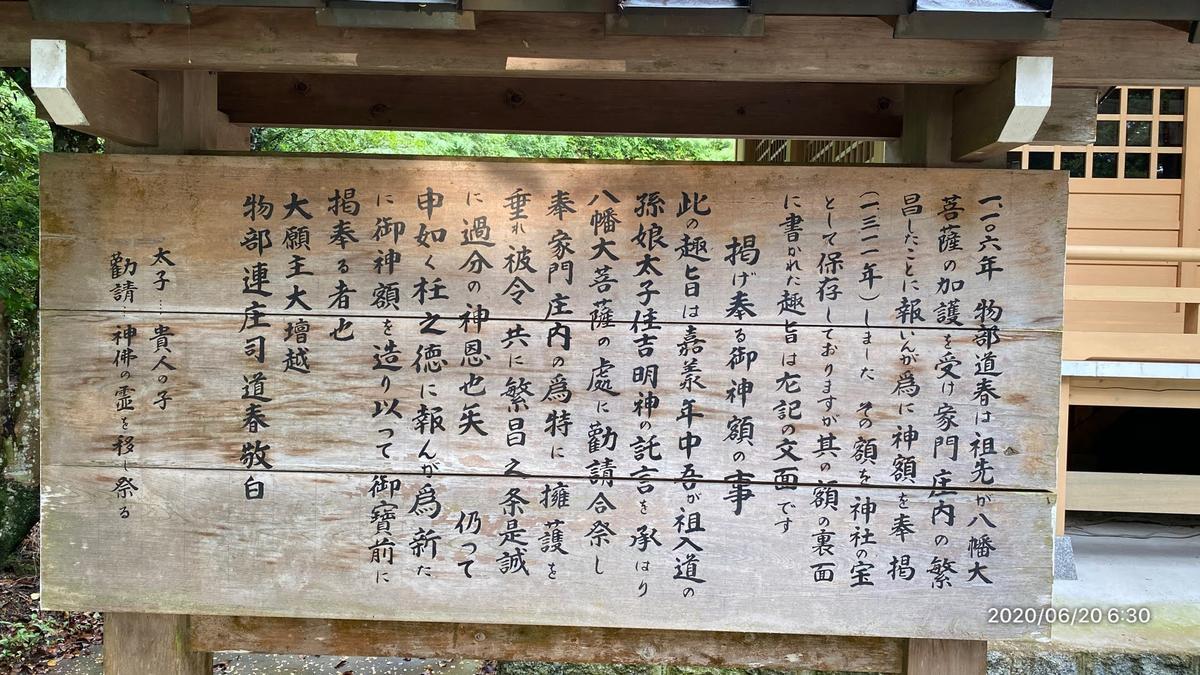 一一〇六年 物部道春は祖先が八幡大
菩薩の加護を受け家門庄内の繁
昌したことに報いんが為に神額を奉掲
(一三一一年)しました その額を神社の宝
として保存しておりますが其の額の裏面
に書かれた趣旨は左記の文面です
掲げ奉る御神額の事
此の趣旨は嘉義年中吾が祖入道の
孫娘太子住吉明神の託言を承はり
八幡大菩薩の處に勸請合祭し
奉家門庄内の為特に擁護を
垂れ被令共に繁昌之条是誠
に過分の神恩也矣 仍って
申如く枉之徳に報んが為新た
に御神額を造り以って御寶前に
掲奉る者也
大願主大壇越
物部連庄司道春敬白
太子…貴人の子
勸請…神佛の霊を移し祭る
2020/06/20 6:30